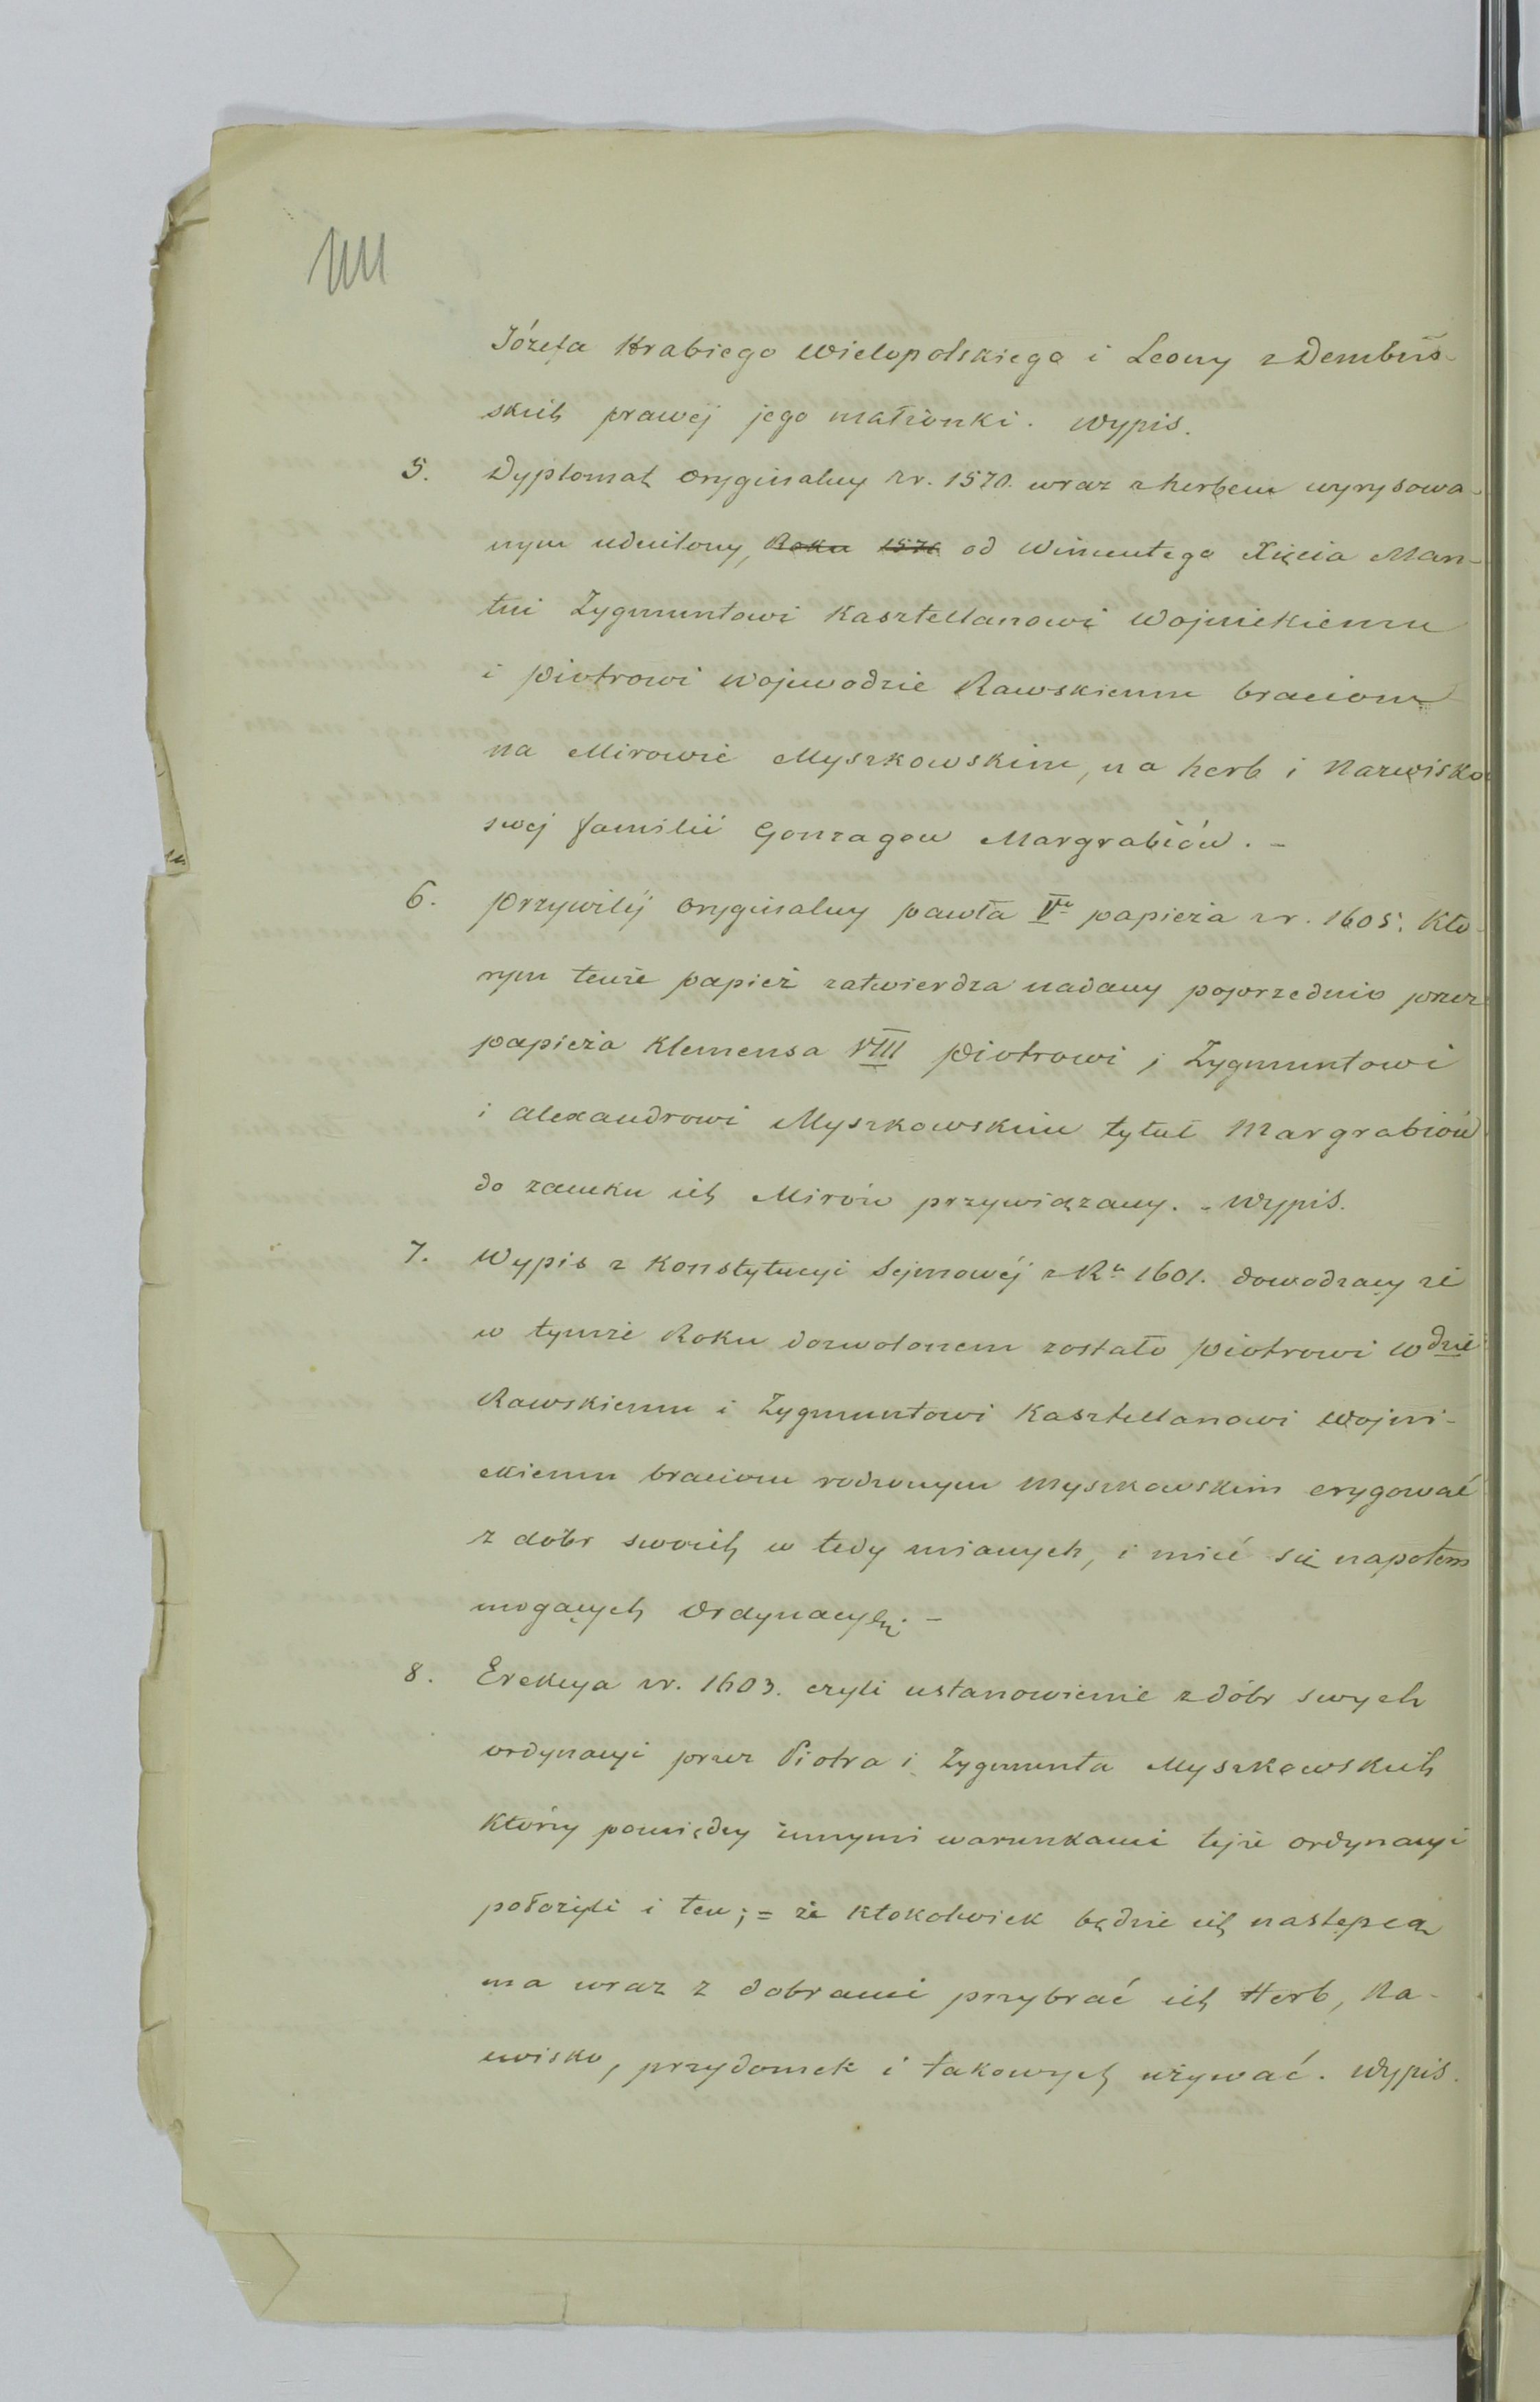 Józefa Hrabiego Wielopolskiego i Leony z Dembiń-
skich prawéj jego małżonki. Wypis.
5. Dyplomat oryginalny z r. 1570. wraz z herbem wyrysowa-
nym udzielony, Roku 1576 od Wincentego Xięcia Man-
tui Zygmuntowi Kasztellanowi Wojnickiemu
i Piotrowi Wojewodzie Rawskiemu braciom
na Mirowie Myszkowskim, na herb i Nazwisko
swej familii Gonzagow Margrabiów. -
6. Przywilej oryginalny Pawła Vº papieża z r. 1605. Któ-
rym tenże papież zatwierdza nadany poprzednio przez
papieża Klemensa VIII Piotrowi, Zygmuntowi
i Alexandrowi Myszkowskim tytuł Margrabiów
do zamku ich Mirów przywiązany. - Wypis.
7. Wypis z Konstytucyi Sejmowéj z Rº 1601. dowodzący że
w tymże Roku dozwolonem zostało Piotrowi Wdzie
Rawskiemu i Zygmuntowi Kasztellanowi Wojni-
ckiemu braciom rodzonym Myszkowskim erygować
z dóbr swoich w tedy mianych, i mieć się napotem
mogących Ordynacyą. -
8. Erekcya z r. 1603. czyli ustanowienie z dóbr swych
ordynacyi przez Piotra i Zygmunta Myszkowskich
którzy pomiędzy innymi warunkami tejże ordynacyi
położyli i ten; = że ktokolwiek będzie ich następcą
ma wraz z dobrami przybrać ich Herb, Na-
zwisko, przydomek i takowych używać. Wypis.